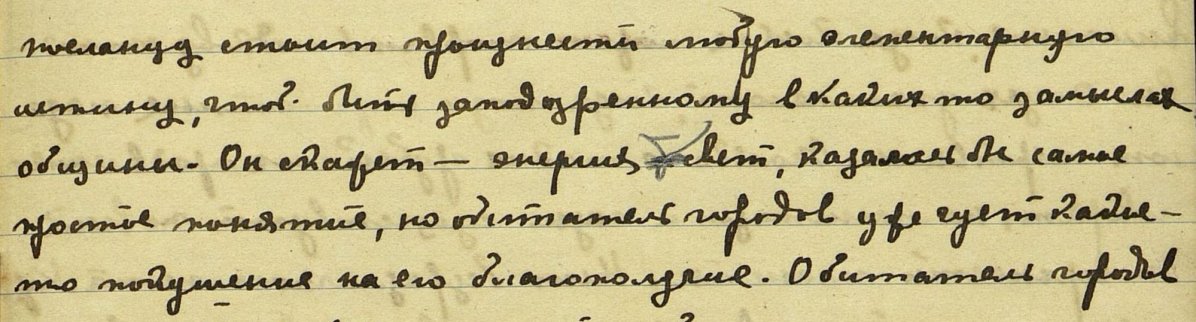 посланцу стоит произнести любую элементарную
истину, чтоб. быть заподозренному в каких то замыслах
общины. Он скажет — энергия свет, казалось бы самое
простое понятие, но обитатель городов уже чует какое-
то покушение на его благополучие. Обитатель городов